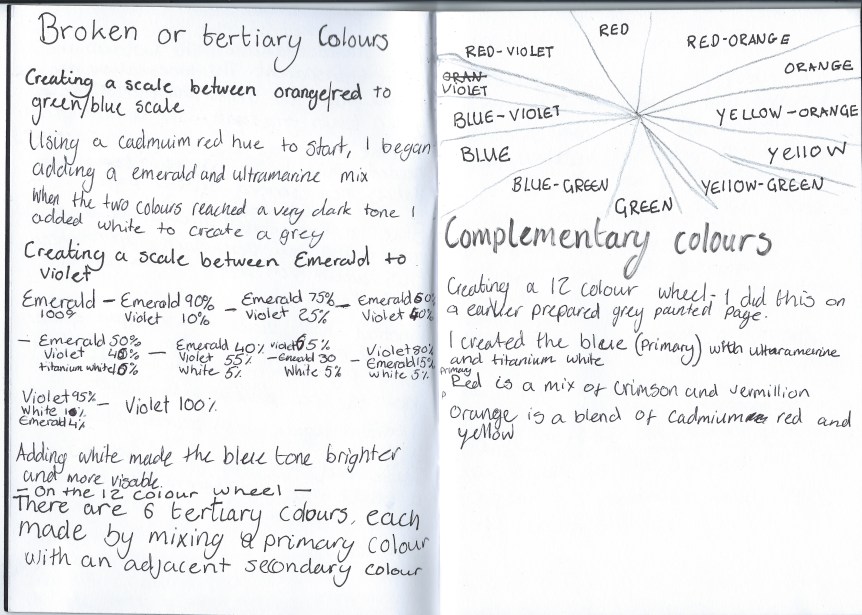 Broken or tertiary Colours
Creating a scale between orange/red to
green/blue scale
Using a cadmuim red hue to start, I began
adding a emerald and ultramarine mix
When the two colours reached a very dark tone I
added white to create a grey
Creating a scale between Emerald to
Violet
Emerald 100% – Emerald 90% Violet 10% – Emerald 75% Violet 25% – Emerald 60% Violet 40%
– Emerald 50% Violet 45% titanium white 5% – Emerald 40% Violet 55% White 5% – Violet 65% Emerald 30 White 5% – Violet 80% Emerald 15% White 5%
Violet 95% White 1% Emerald 4% – Violet 100%
Adding white made the blue tone brighter
and more visable.
– On the 12 colour wheel –
There are 6 tertiary colours, each
made by mixing a primary colour
with an adjacent secondary colour
RED
RED-VIOLET
RED-ORANGE
ORAN-
VIOLET
ORANGE
BLUE-VIOLET
YELLOW-ORANGE
BLUE
YEllOW
BLUE-GREEN
YEllOW-GREEN
GREEN
Complementary colours
Creating a 12 colour wheel - I did this on
a earlier prepared grey painted page.
I created the blue (Primary) with ultaramerine
and titanium white
primary
Red is a mix of Crimson and vermillion
Orange is a blend of Cadmium red and
yellow